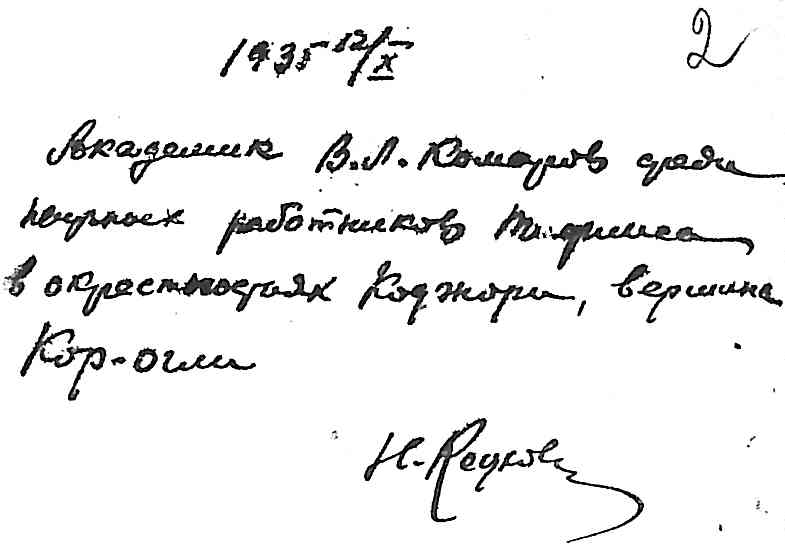 1935 12/X
2
Академик В.Л. Комаров среди
научных работников Тифлиса
в окрестностях Коджори, вершина
Кор-оглы
Н.